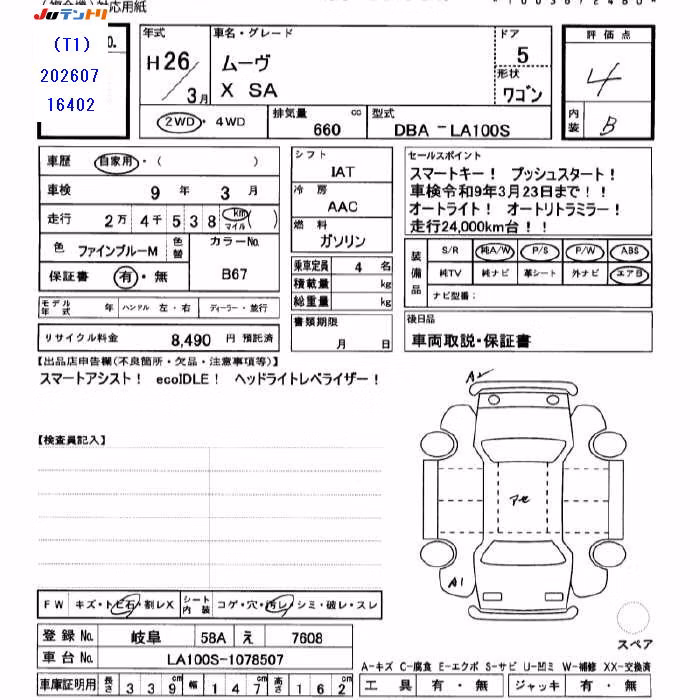 対応用紙
Juテントリ
(T1)
202607
16402
O.
年式
H26/3月
車名・グレード
ムーヴ
X SA
ドア
5
形状
ワゴン
評価点
4
内装
B
2WD・4WD
排気量 cc
660
型式
DBA -LA100S
車歴 自家用・( )
車検 9年 3月
走行 2万4千538 km マイル( )
色 ファインブルーM 色替
カラーNo.
B67
保証書 有・無
シフト
IAT
冷房
AAC
燃料
ガソリン
乗車定員 4名
積載量 kg
総重量 kg
セールスポイント
スマートキー! プッシュスタート!
車検令和9年3月23日まで!!
オートライト! オートリトラミラー!
走行24,000km台!!
装備品
S/R 純A/W P/S P/W ABS
純TV 純ナビ 革シート 外ナビ エアB
ナビ型番:
モデル年式 年 ハンドル 左・右 ディーラー・並行
リサイクル料金 8,490 円 預託済
書類期限
月 日
後日品
車両取説・保証書
【出品店申告欄(不良箇所・欠品・注意事項等)】
スマートアシスト! ecoIDLE! ヘッドライトレベライザー!
【検査員記入】
A2
アセ
A1
FW キズ・トビ石・割レX シート内装 コゲ・穴・汚レ・シミ・破レ・スレ
登録No. 岐阜 58A え 7608
車台No. LA100S-1078507
車庫証明用 長さ 339cm 幅 147cm 高さ 162cm
スペア
A-キズ C-腐食 E-エクボ S-サビ U-凹ミ W-補修 XX-交換済
工具 有・無 ジャッキ 有・無